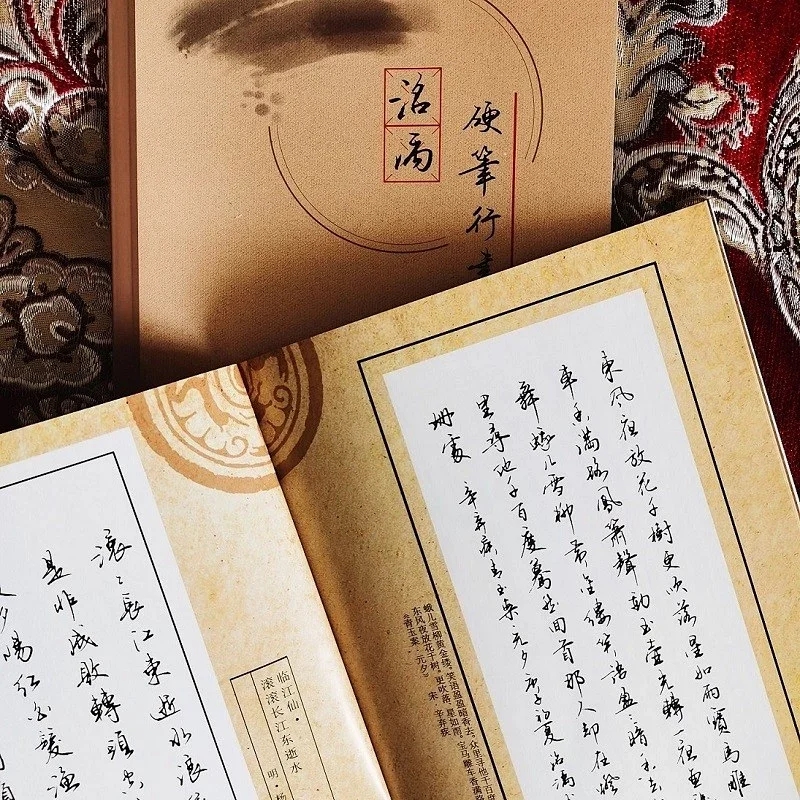 洺
硬筆行書
東風夜放花千樹更吹落星如雨寶馬雕
車香滿路鳳簫聲動玉壺光轉一夜魚
舞蛾兒雪柳黃金縷笑語盈〻暗香去
里尋他千百度驀然回首那人却在燈
珊處 辛棄疾青玉案元夕庚子初夏洺
《青玉案·元夕》
宋 辛弃疾
东风夜放花千树。更吹落、星如雨。宝马雕车香满路
蛾儿雪柳黄金缕。笑语盈盈暗香去。众里寻他千百度
滚〻長江東逝水浪
是非成敗轉頭空
夕陽红白髮漁
临江仙·
滚滚长江东逝水
明·杨